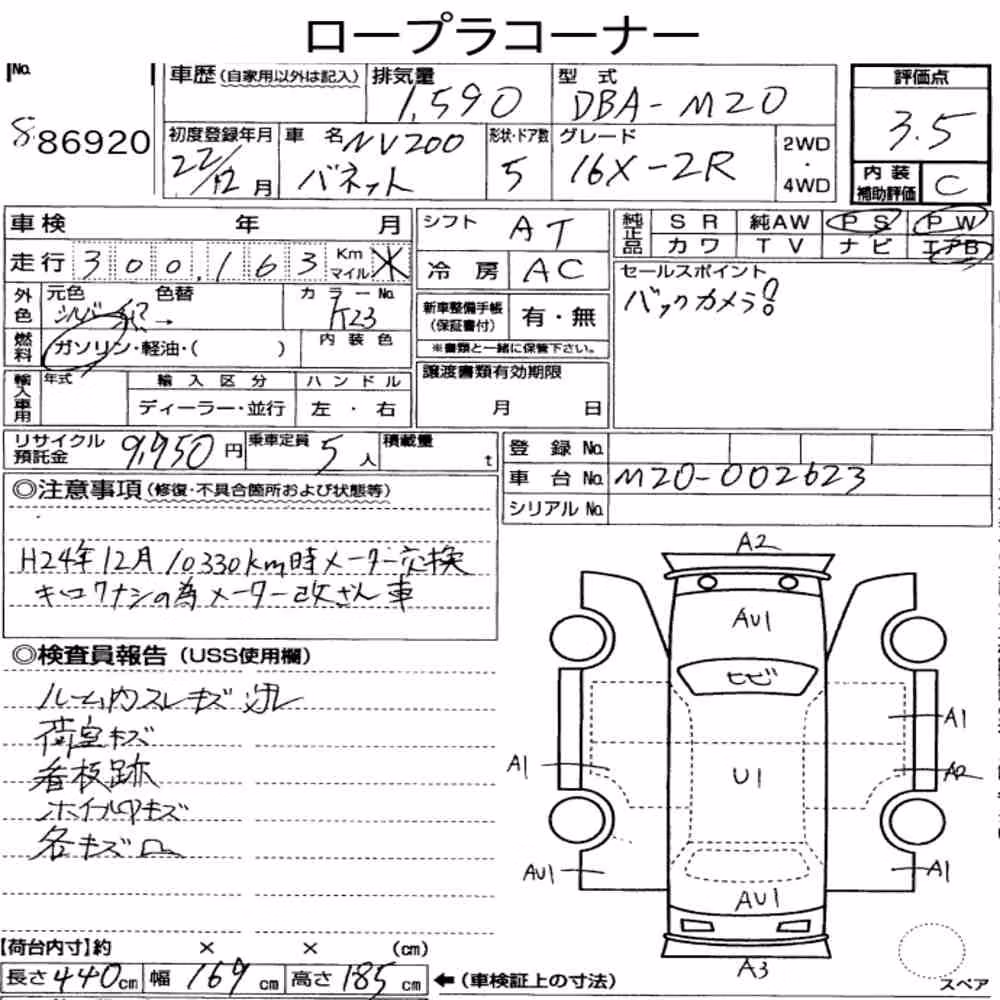 ロープラコーナー
No. 886920
車歴(自家用以外は記入) 排気量 1,590 型式 DBA-M20 評価点 3.5
初度登録年月 22/12月 車名 NV200 バネット 形状・ドア数 5 グレード 16X-2R 2WD・4WD 内装補助評価 C
車検 年 月 シフト AT 純正品 SR 純AW PS PW
カワ TV ナビ エアB
走行 300,163 Km マイル ※ 冷房 AC セールスポイント
バックカメラ!
外色 元色 色替 カラーNo.
シルバー → K23
新車整備手帳(保証書付) 有・無
※書類と一緒に保管下さい。
燃料 ガソリン・軽油・( ) 内装色
輸入車用 年式 輸入区分 ハンドル
ディーラー・並行 左・右
譲渡書類有効期限
月 日
リサイクル預託金 9,950円 乗車定員 5人 積載量 t
登録No.
車台No. M20-002623
シリアルNo.
◎注意事項(修復・不具合箇所および状態等)
H24年12月 10330km時メーター交換
キロクナシの為メーター改ざん車
◎検査員報告(USS使用欄)
ルーム内スレキズ
荷室キズ
看板跡
ホイルキズ
各キズ凹
A2
AU1
ヒビ
A1
A1
U1
A2
AU1
A1
AU1
A3
スペア
【荷台内寸】約 × × (cm)
長さ440cm 幅169cm 高さ185cm ←(車検証上の寸法)